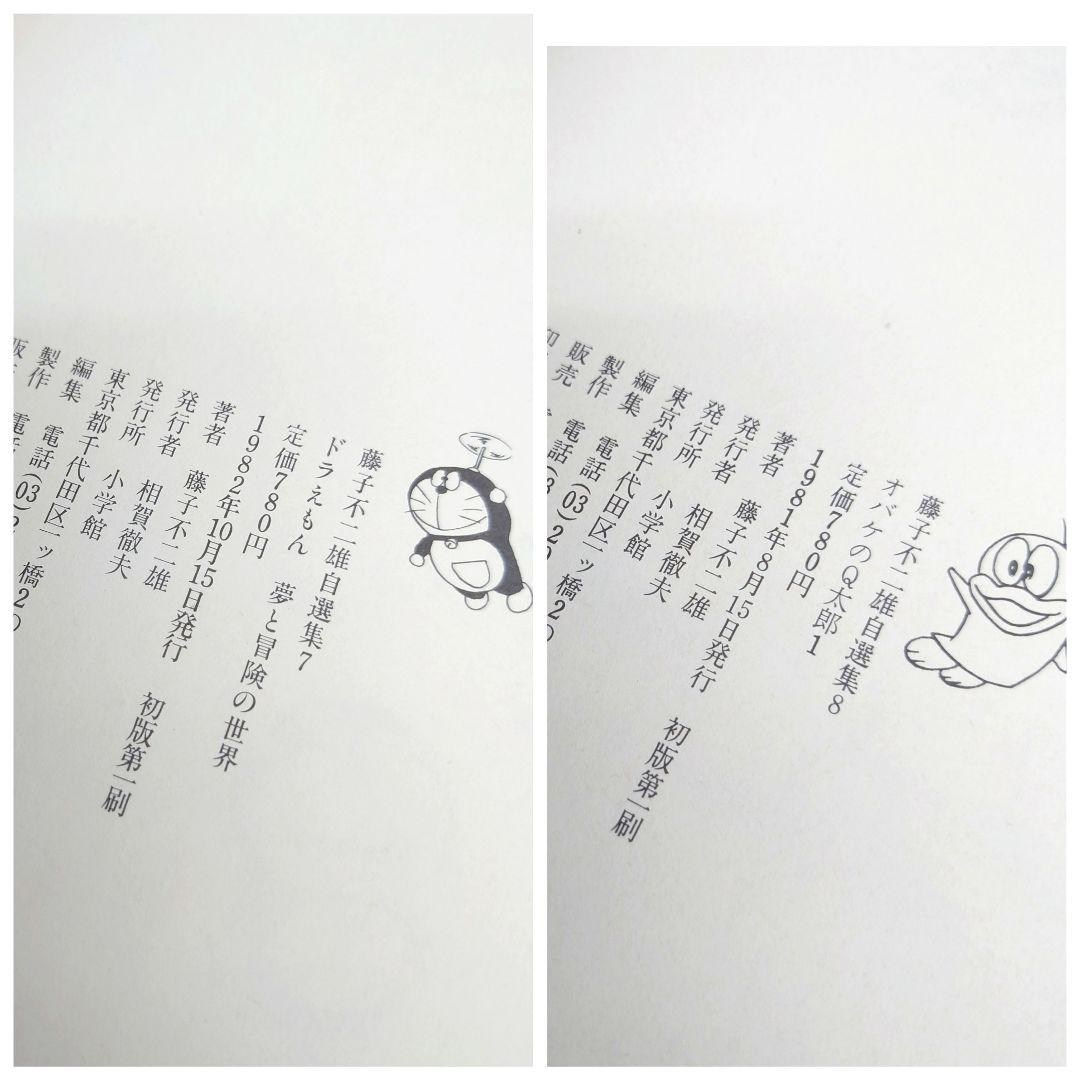 藤子不二雄自選集7
ドラえもん 夢と冒険の世界
定価780円
1982年10月15日発行 初版第一刷
著者 藤子不二雄
発行者 相賀徹夫
発行所 小学館
東京都千代田区一ッ橋2の
編集 電話(03)2
製作 電話
藤子不二雄自選集8
オバケのQ太郎1
定価780円
1981年8月15日発行 初版第一刷
著者 藤子不二雄
発行者 相賀徹夫
発行所 小学館
東京都千代田区一ッ橋2の
編集 電話(03)20
製作 電話(03)
販売